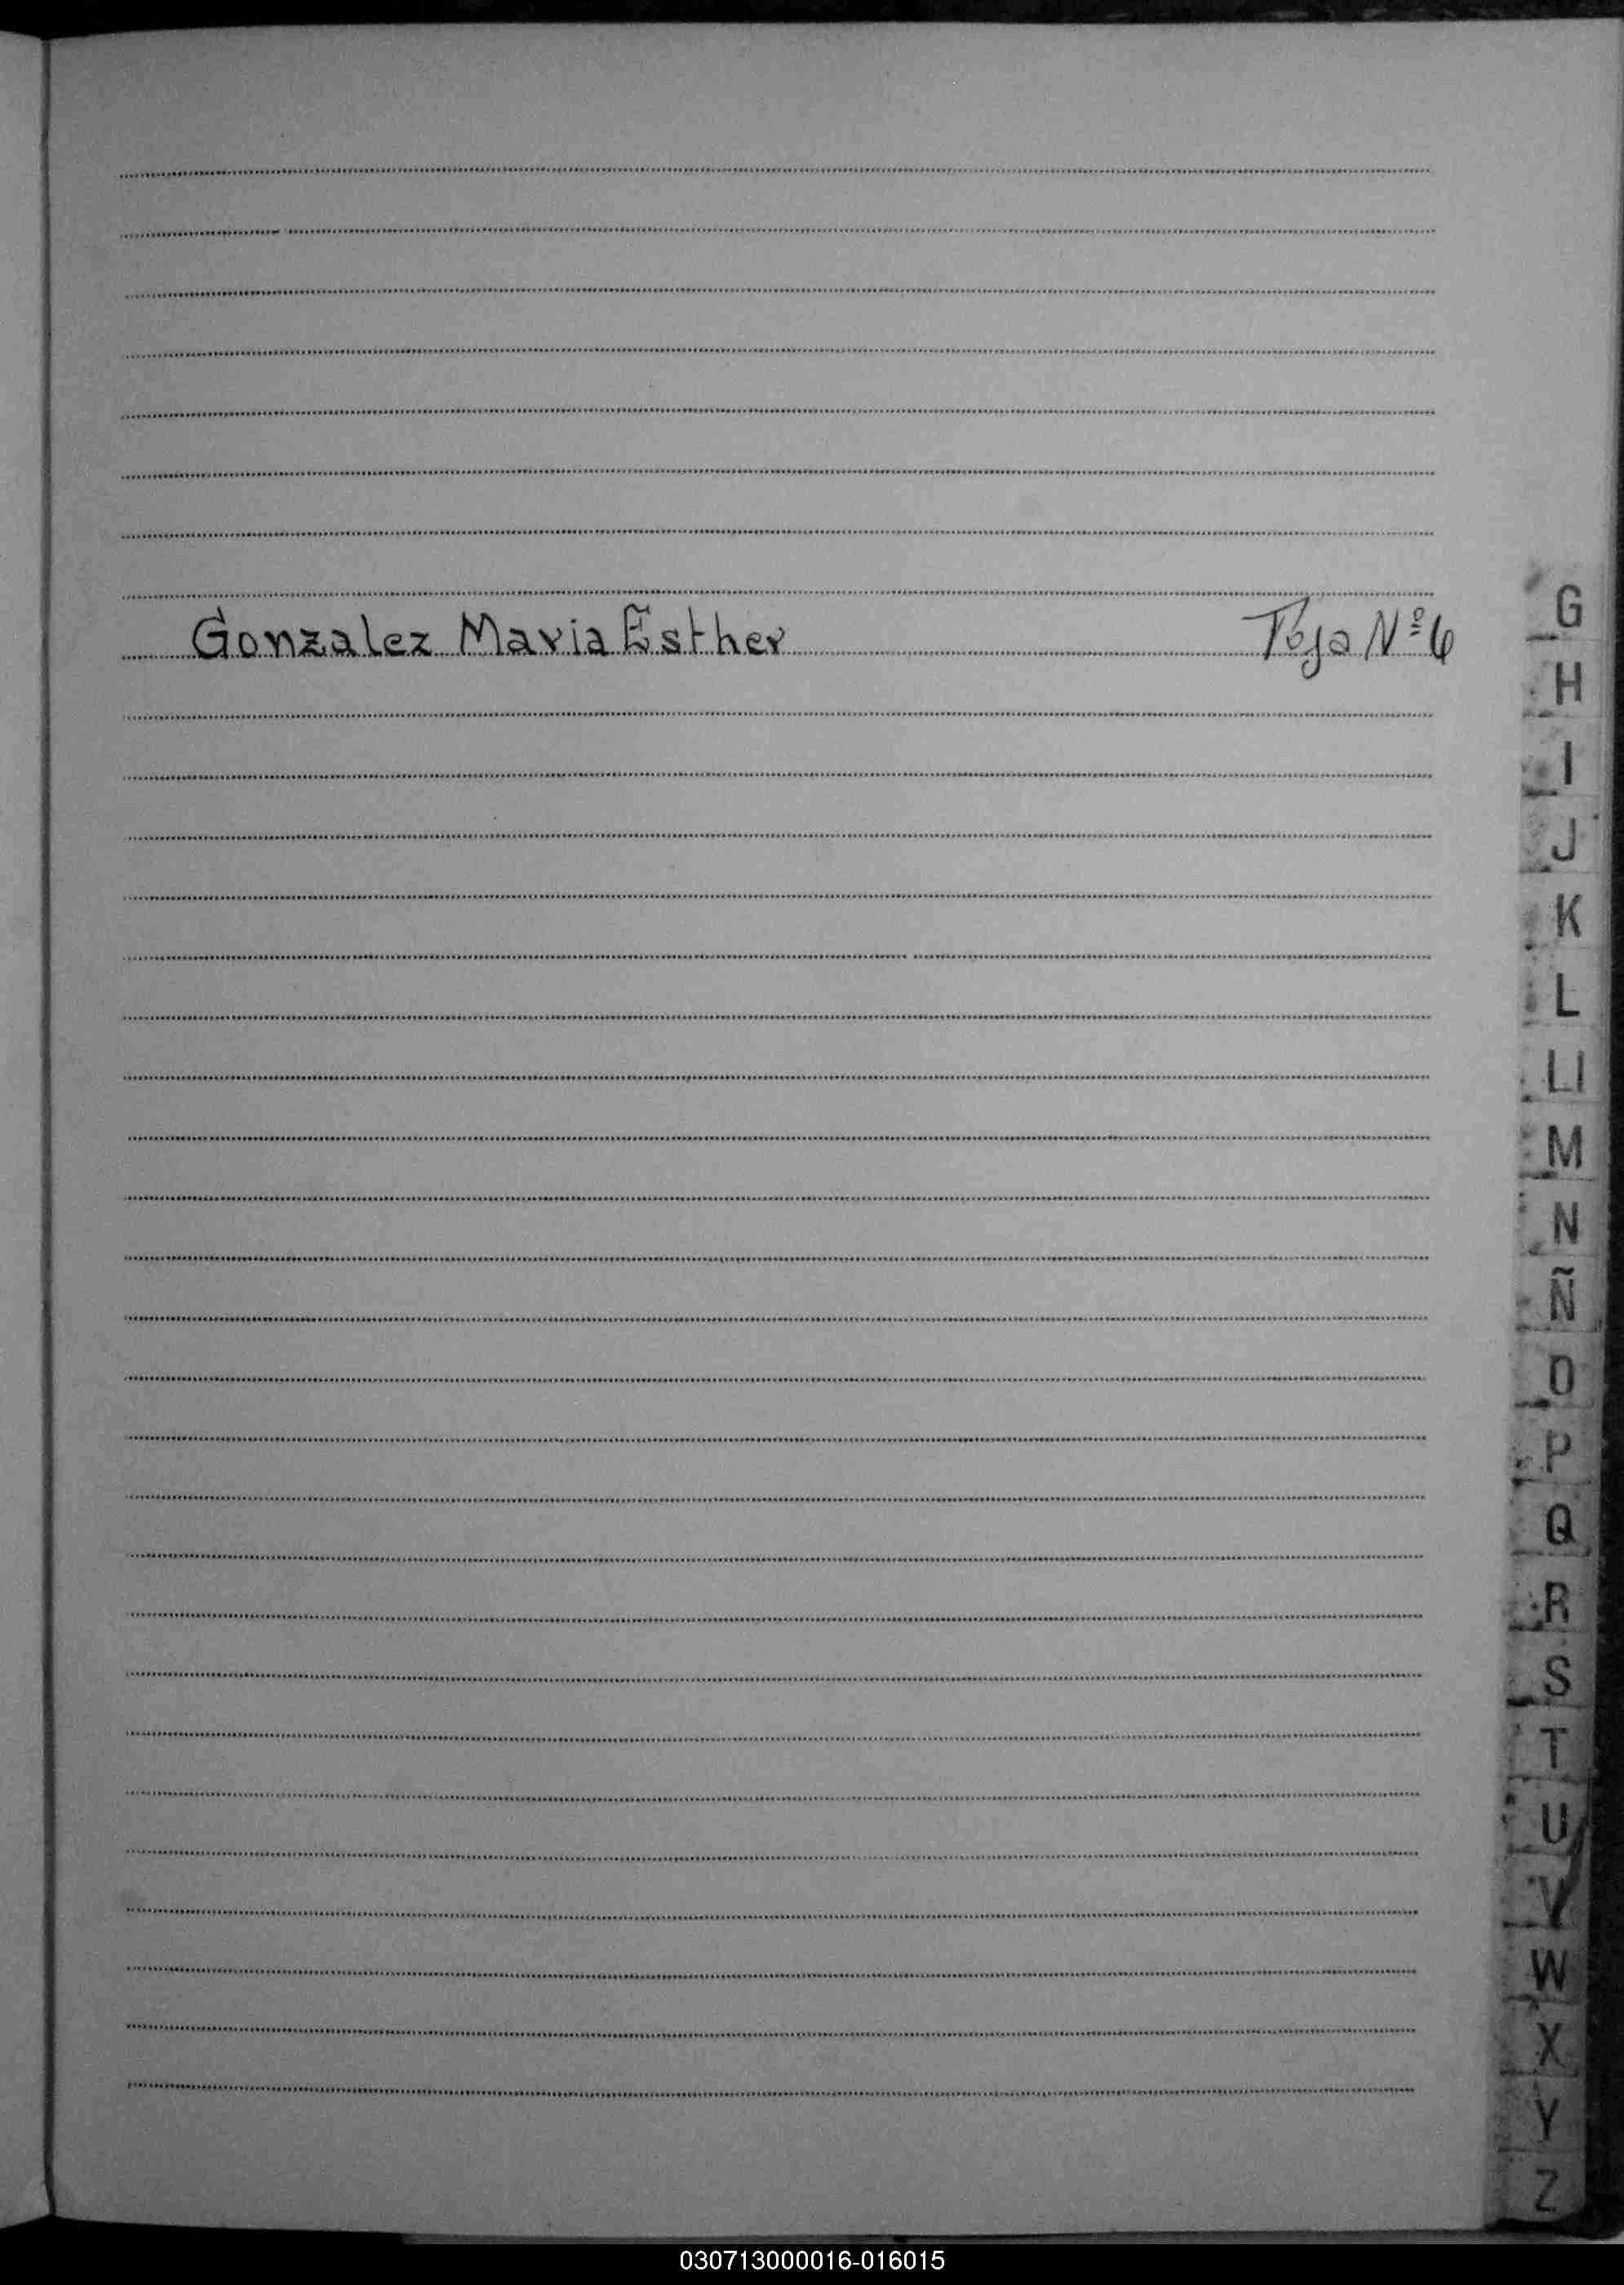 Gonzalez Maria Esther Foja Nº 6
G
H
I
J
K
L
Ll
M
N
Ñ
O
P
Q
R
S
T
U
V
W
X
Y
Z
030713000016-016015